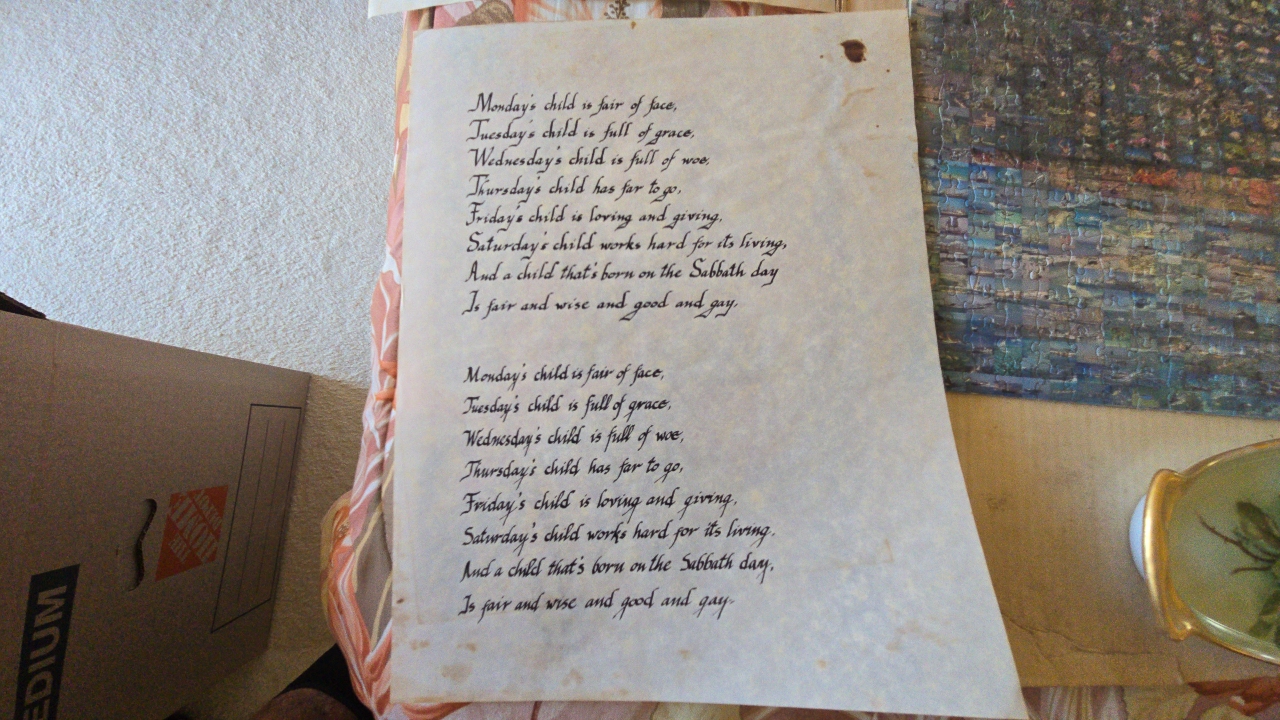 Monday's child is fair of face,
Tuesday's child is full of grace,
Wednesday's child is full of woe,
Thursday's child has far to go,
Friday's child is loving and giving,
Saturday's child works hard for its living,
And a child that's born on the Sabbath day
Is fair and wise and good and gay.
Monday's child is fair of face,
Tuesday's child is full of grace,
Wednesday's child is full of woe,
Thursday's child has far to go,
Friday's child is loving and giving,
Saturday's child works hard for its living,
And a child that's born on the Sabbath day,
Is fair and wise and good and gay.
EDIUM